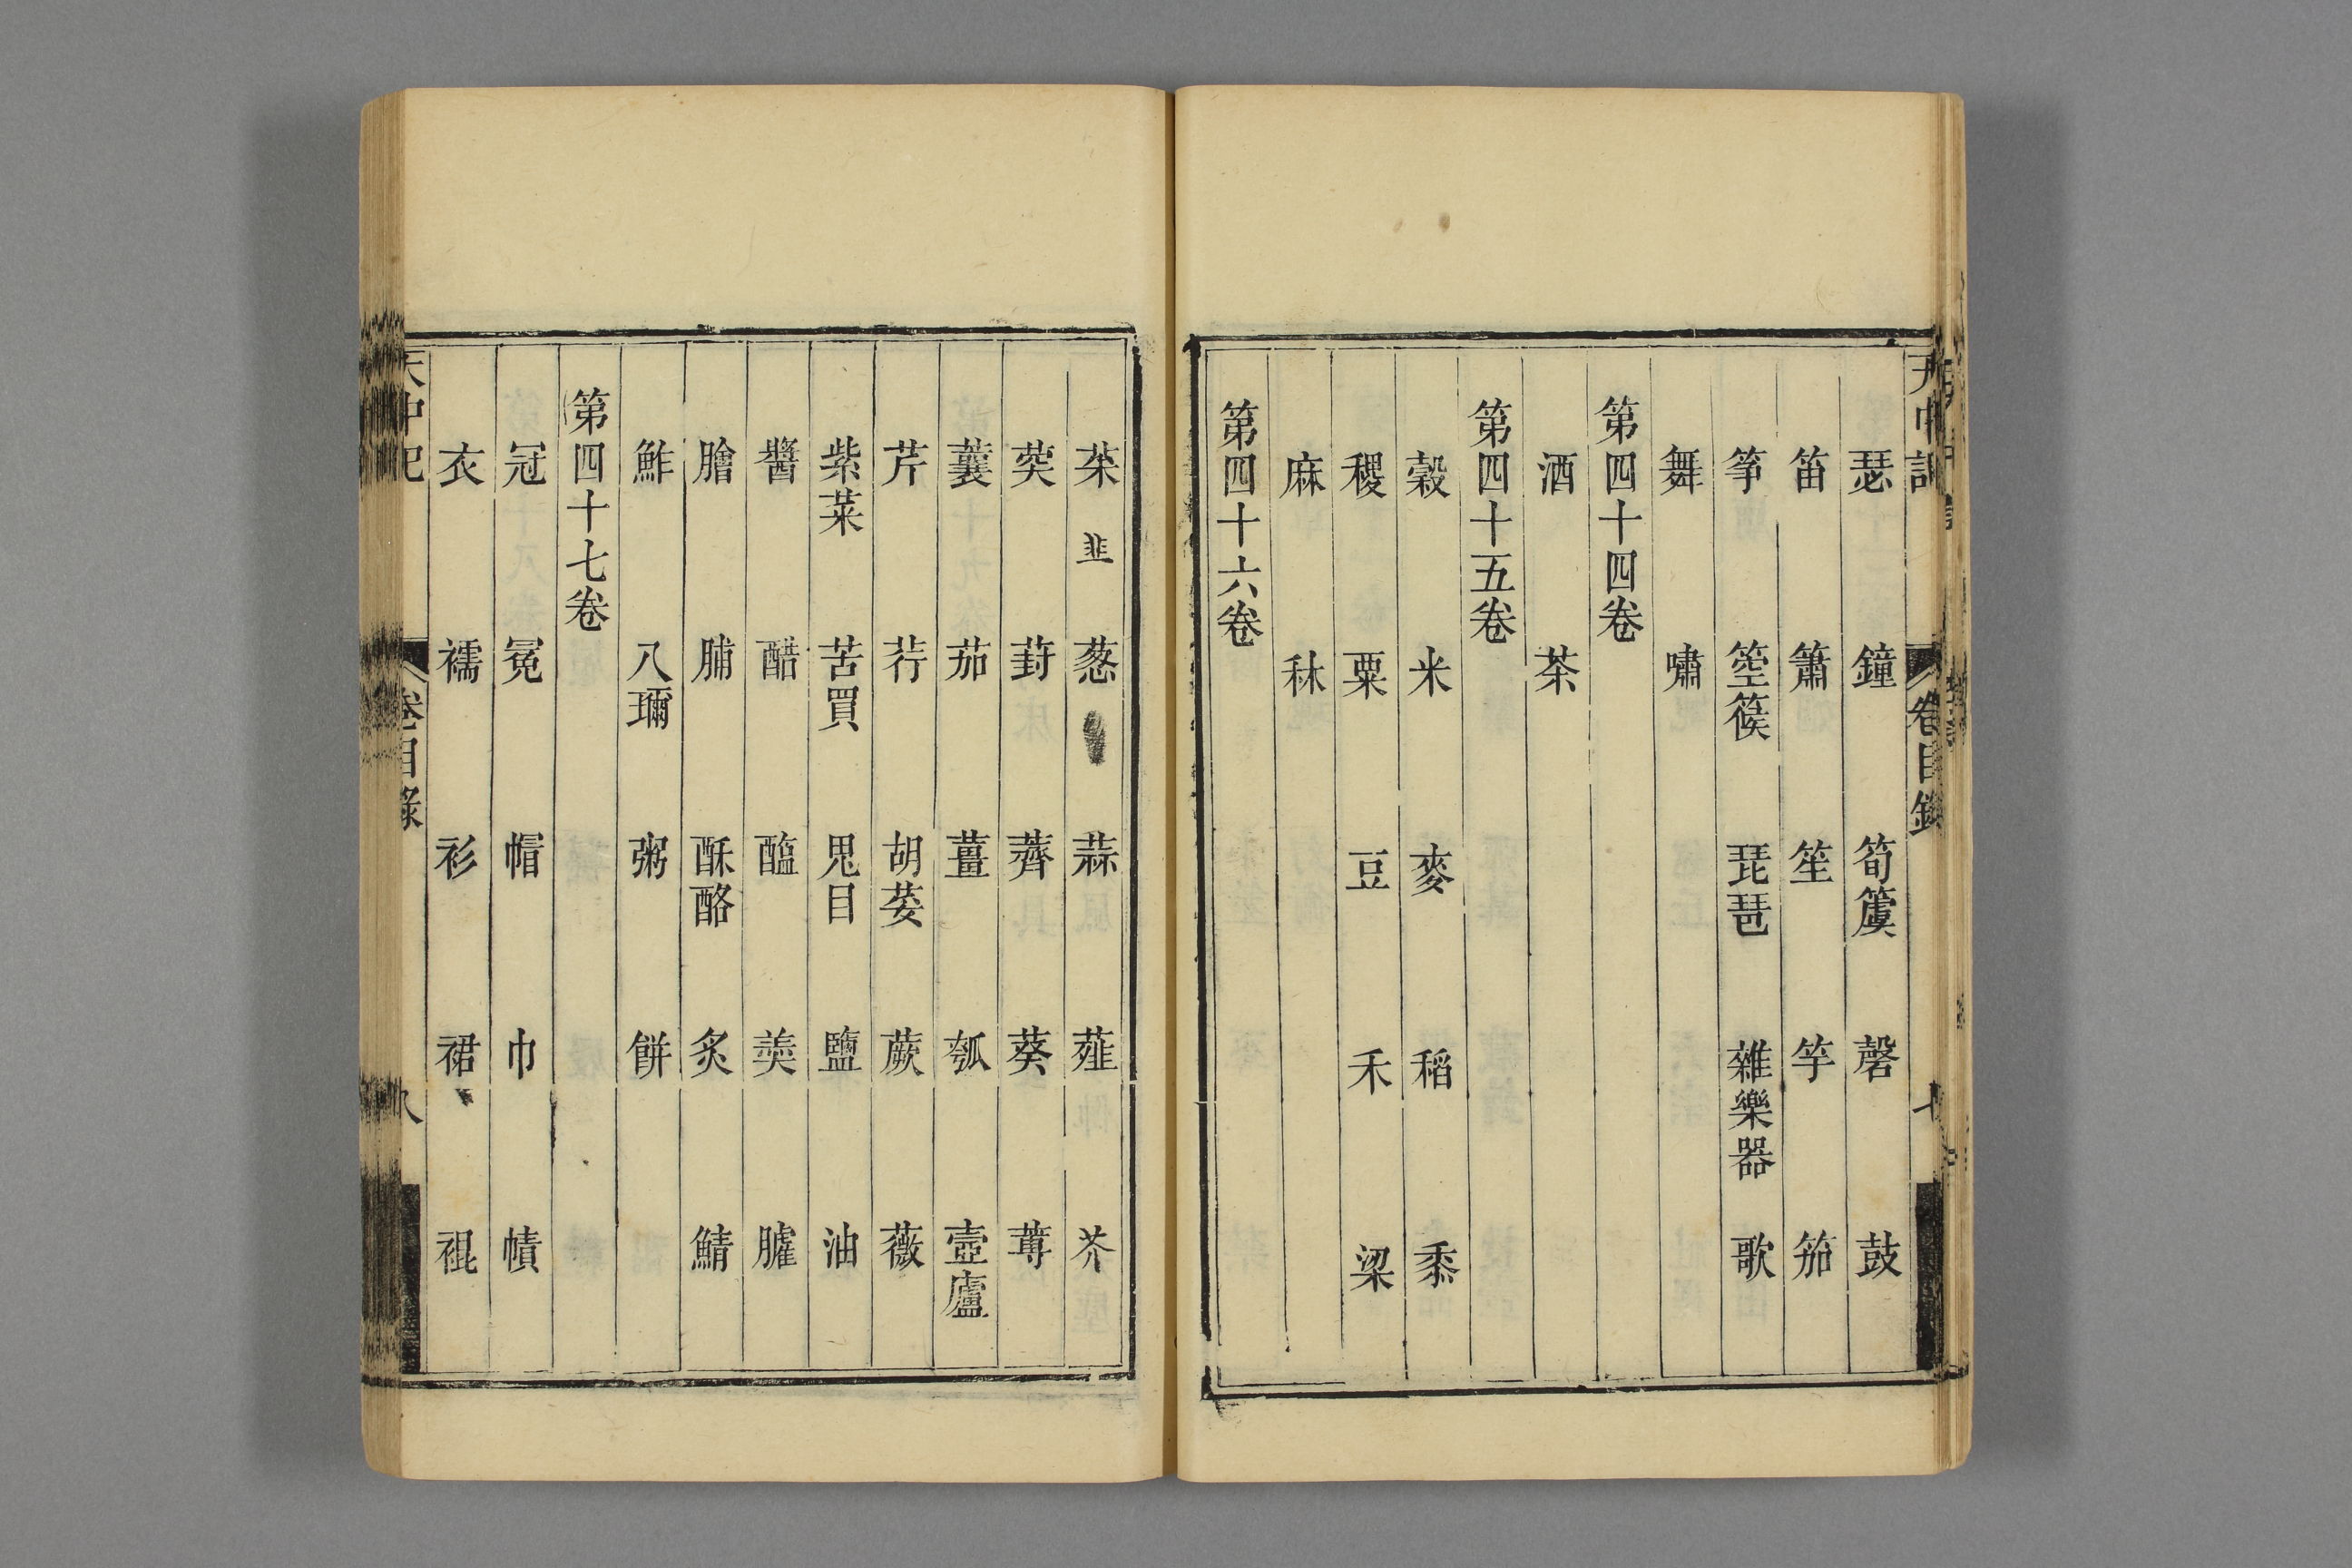 瑟 鐘 筍簴 磬 鼓
笛 簫 笙 竽 笳
筝 箜篌 琵琶 雜樂器 歌
舞 嘯
第四十四卷
酒 茶
第四十五卷
穀 米 麥 稻 黍
稷 粟 豆 禾 梁
麻 秫
第四十六卷
菜 韭 葱 蒜 薤 芥
葑 薺 葵 蓴
蘘 茄 薑 瓠 壼廬
芹 荇 胡荽 蕨 薇
紫菜 苦買 鬼目 鹽 油
醬 醋 醢 羮 臛
膾 脯 酥酪 炙 鯖
鮓 八珎 粥 餅
第四十七卷
冠 冕 帽 巾 幘
衣 襦 衫 裙 裩
天中記 卷目錄 八